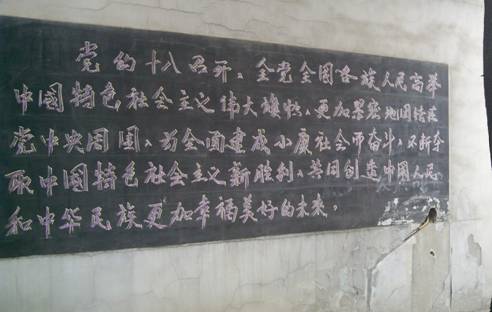 党的十八召开、全党全国各族人民高举
中国特色社会主义伟大旗帜、更加紧密地团结在
党中央周围、为全面建成小康社会而奋斗、不断夺
取中国特色社会主义新胜利、共同创造中国人民
和中华民族更加幸福美好的未来。